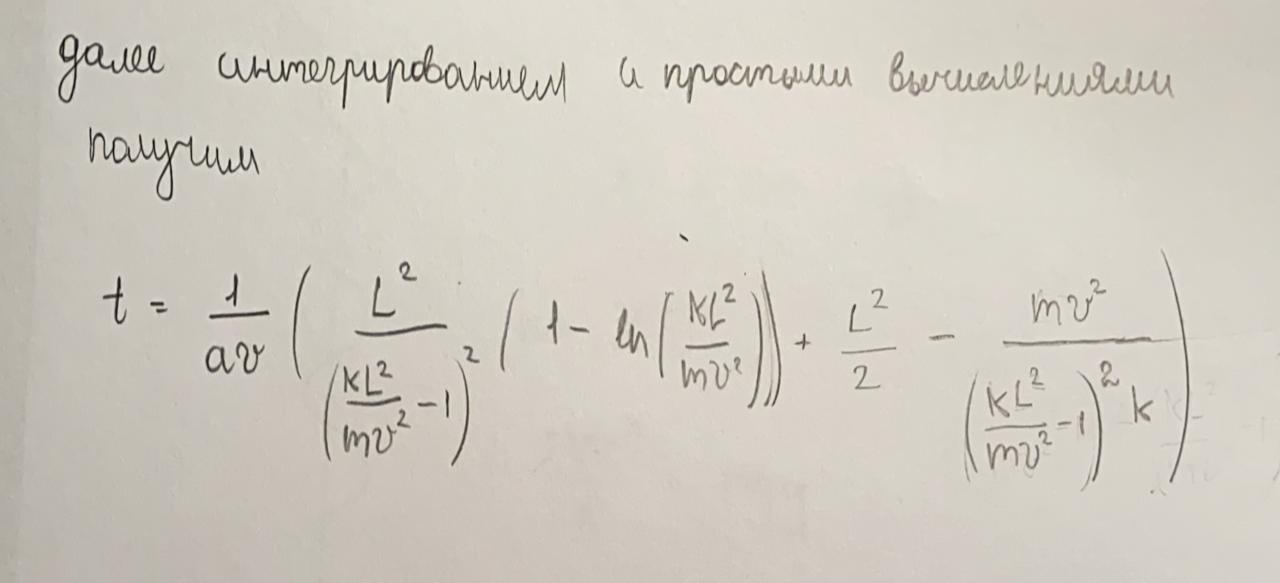 далее интегрированием и простыми вычислениями
получим
t = 1/av ( L²/(KL²/mv² - 1)² ( 1 - ln(KL²/mv²)) + L²/2 - mv²/((KL²/mv² - 1)² k) )